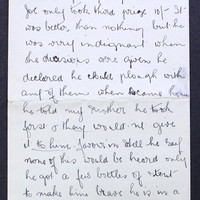 Joe only took third prize 10/- It
was better than nothing but he
was very indignant when
the decisions were given he
declared he could plough with
any of them when became home
he told my Father he took
first & they would not give
it to him. favour in Hell he say
none of his would be heard only
he got a few bottles of stout
to make him brave he is in a